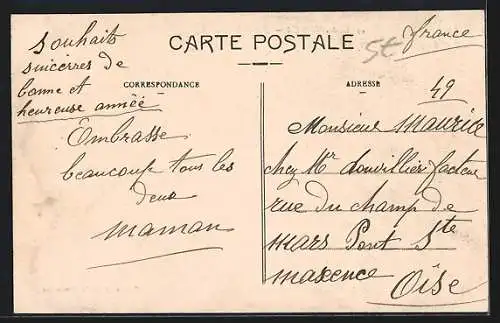 Souhaits
sincerres de
bonne et
heureuse année
CARTE POSTALE
St.
france
CORRESPONDANCE
Embrasse
beaucoup tous les
deux
maman
ADRESSE
49
Monsieur Maurice
chez Mr douvillier facteur
rue du champ de
mars Pont Ste
maxence
Oise